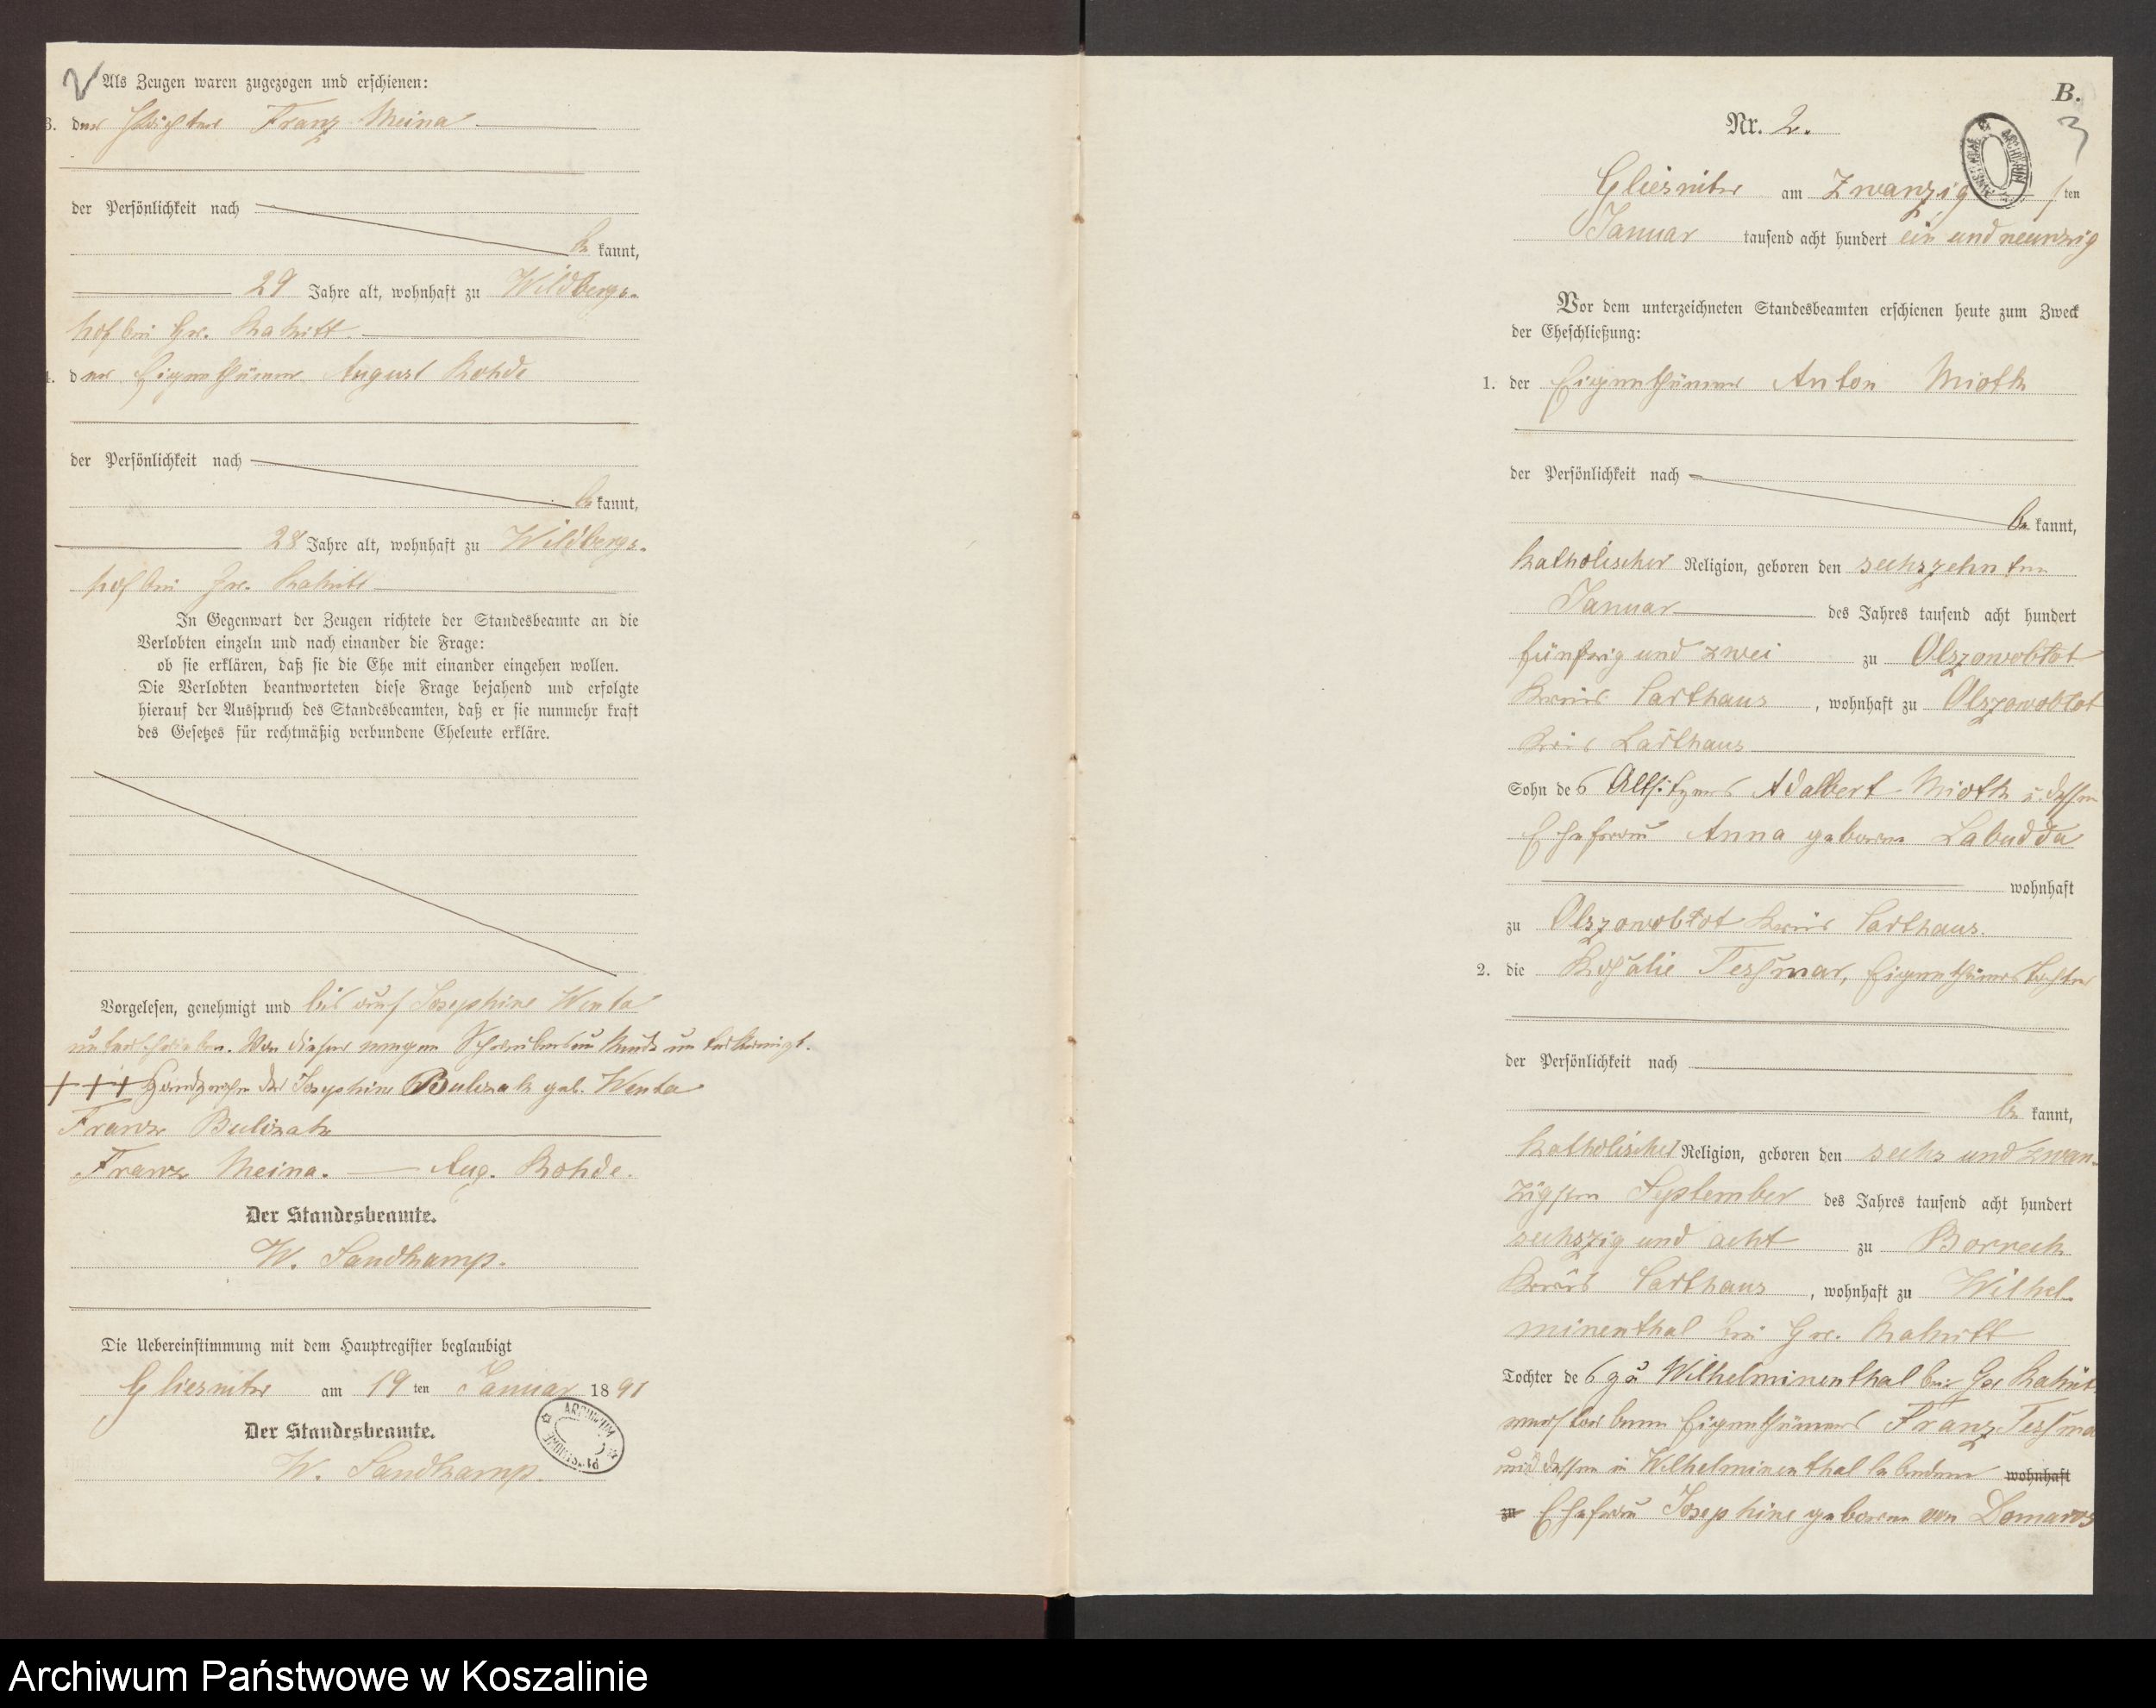 Als Zeugen waren zugezogen und erschienen:
3. der Franz Meina
der Persönlichkeit nach
be kannt,
29 Jahre alt, wohnhaft zu Wildbergs-
hof bei Gr. Rakitt.
4. der Eigenthümer August Rohde
der Persönlichkeit nach
be kannt,
28 Jahre alt, wohnhaft zu Wildbergs-
hof bei Gr. Rakitt
In Gegenwart der Zeugen richtete der Standesbeamte an die
Verlobten einzeln und nach einander die Frage:
ob sie erklären, daß sie die Ehe mit einander eingehen wollen.
Die Verlobten beantworteten diese Frage bejahend und erfolgte
hierauf der Ausspruch des Standesbeamten, daß er sie nunmehr kraft
des Gesetzes für rechtmäßig verbundene Eheleute erkläre.
Vorgelesen, genehmigt und bis auf Josephine Wenta
unterschrieben. Von dieser wegen Schreibens unterkreuzt.
+++ Handzeichen der Josephine Bulczak geb. Wenta
Franz Bulczak
Franz Meina. Aug. Rohde.
Der Standesbeamte.
W. Sandkamp.
Die Uebereinstimmung mit dem Hauptregister beglaubigt
Gliesnitz am 19 ten Januar 18 91
Der Standesbeamte.
W. Sandkamp.
B.
3
Nr. 2.
Gliesnitz am zwanzig s ten
Januar tausend acht hundert ein und neunzig
Vor dem unterzeichneten Standesbeamten erschienen heute zum Zweck
der Eheschließung:
1. der Eigenthümer Anton Mioth
der Persönlichkeit nach
be kannt,
katholischer Religion, geboren den sechszehnten
Januar des Jahres tausend acht hundert
fünfzig und zwei zu Olszowoblot
Kreis Carthaus, wohnhaft zu Olszowoblot
Kreis Carthaus
Sohn des Altsitzers Adalbert Mioth u. dessen
Ehefrau Anna geborne Labudda
wohnhaft
zu Olszowoblot Kreis Carthaus.
2. die Rosalie Tessmar, Eigenthümertochter
der Persönlichkeit nach
be kannt,
katholischer Religion, geboren den sechs und zwan-
zigsten September des Jahres tausend acht hundert
sechszig und acht zu Borreck
Kreis Carthaus, wohnhaft zu Wilhel-
minenthal bei Gr. Rakitt
Tochter des zu Wilhelminenthal bei Gr Rakitt
verstorbenen Eigenthümers Franz Tessmar
und dessen in Wilhelminenthal lebenden wohnhaft
zu Ehefrau Josephine geborne von Domaros
Archiwum Państwowe w Koszalinie